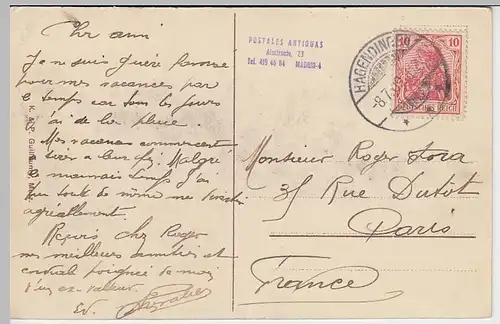 Cher ami
Je ne suis guère favorisé
pour mes vacances par
le temps car tous les jours
j'ai de la pluie.
Mes vacances commencent
à leur fin. Malgré
le mauvais temps j'ai
tout de même me
agréablement.
Reçois cher Roger
mes meilleures amitiés et
cordial poignée de main
d'un
Ed.
POSTALES ANTIGUAS
23
Tel. 419 46 64 MADRID-4
HAGENDINGEN
-8.7.
10 10
DEUTSCHES REICH
Monsieur Roger
35 Rue Dutot
Paris
France